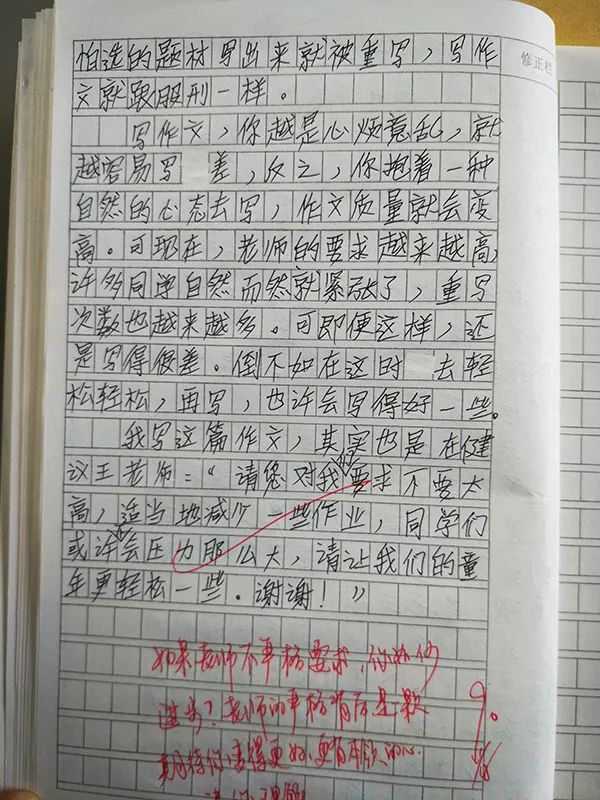 修正栏
怕选的题材写出来就被重写，写作
文就跟服刑一样。
写作文，你越是心烦意乱，就
越容易写 差，反之，你抱着一种
自然的心态去写，作文质量就会变
高。可现在，老师的要求越来越高，
许多同学自然而然就紧张了，重写
次数也越来越多。可即便这样，还
是写得很差。倒不如在这时 去轻
松轻松，再写，也许会写得好一些。
我写这篇作文，其实也是在健
议王老师：“请您对我们要求不要太
高，适当地减少一些作业，同学们
或许会压力那么大，请让我们的童
年更轻松一些．谢谢！”
如果老师不严格要求，你
进步？老师的严格背后是一颗
期待你 得更好，更有本领的心．
请你理解
9.